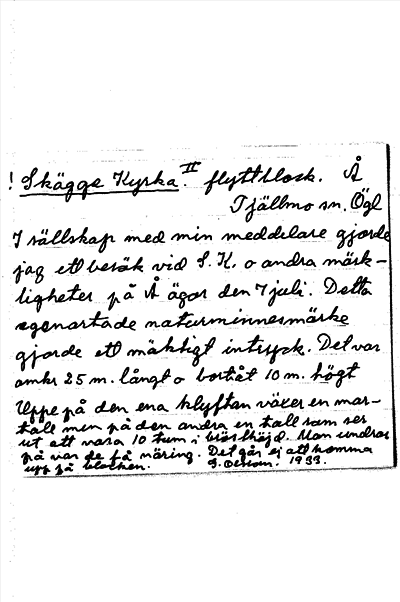 ! Skägga Kyrka. II flyttblock. Å
Tjällmo sn. Ögl
I sällskap med min meddelare gjorde
jag ett besök vid S. K. o andra märk-
ligheter på Å ägor den 7 juli. Detta
egenartade naturminnesmärke
gjorde ett mäktigt intryck. Det var
omkr 25 m. långt o bortåt 10 m. högt
Uppe på den ena klyftan växer en mar-
tall men på den andra en tall som ser
ut att vara 10 tum i brösthöjd. Man undrar
på var de få näring. Det går ej att komma
upp på blocken. 1933.